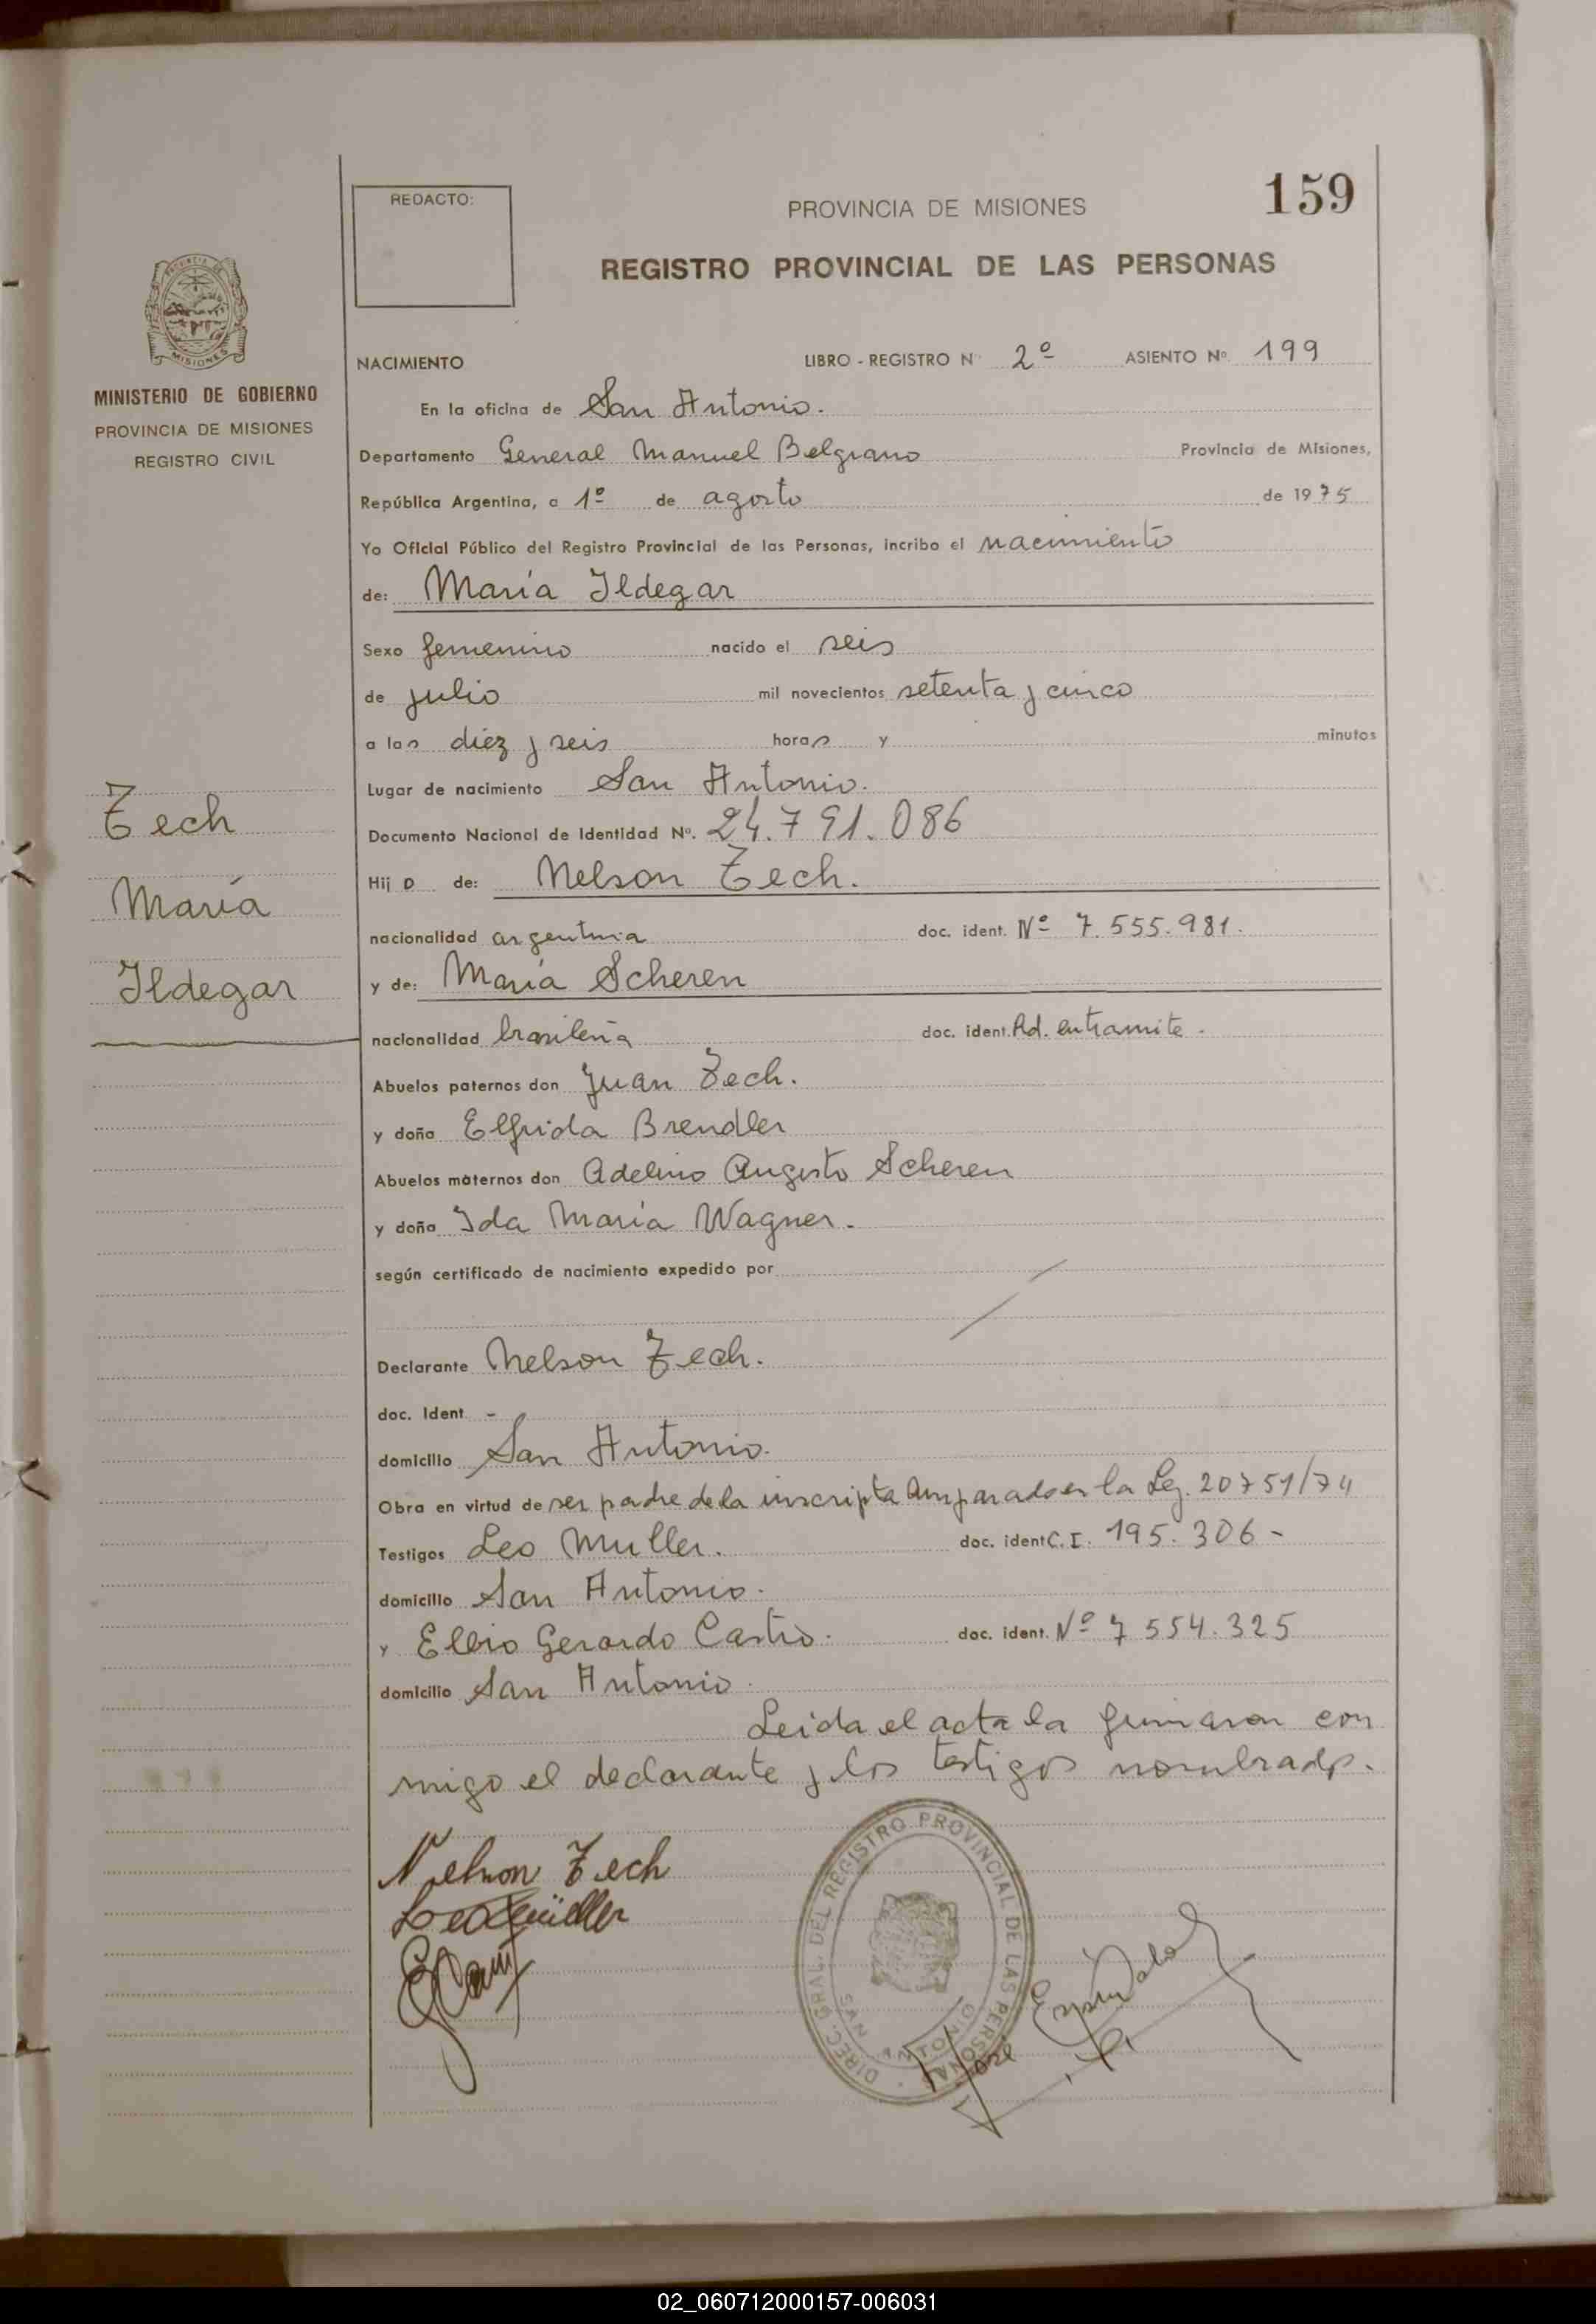 159
REDACTO:
PROVINCIA DE MISIONES
REGISTRO PROVINCIAL DE LAS PERSONAS
MISIONES
MINISTERIO DE GOBIERNO
PROVINCIA DE MISIONES
REGISTRO CIVIL
NACIMIENTO LIBRO - REGISTRO Nº 2º ASIENTO Nº. 199
En la oficina de San Antonio.
Departamento General Manuel Belgrano Provincia de Misiones,
República Argentina, a 1º de agosto de 1975
Yo Oficial Público del Registro Provincial de las Personas, incribo el nacimiento
de: María Ildegar
Sexo femenino nacido el seis
de julio mil novecientos setenta y cinco
a las diez y seis horas y minutos
Lugar de nacimiento San Antonio.
Documento Nacional de Identidad Nº. 24.791.086
Hij a de: Nelson Zech.
nacionalidad argentina doc. ident. Nº 7.555.981.
y de: María Scheren
nacionalidad brasileña doc. ident. Rd. en tramite.
Abuelos paternos don Juan Zech.
y doña Elfrida Brendler
Abuelos maternos don Adelino Augusto Scheren
y doña Ida María Wagner.
según certificado de nacimiento expedido por
Declarante Nelson Zech.
doc. Ident. -
domicilio San Antonio.
Obra en virtud de ser padre de la inscripta Amparado en la Ley. 20751/74
Testigos Leo Muller. doc. ident C.I. 195.306-
domicilio San Antonio.
y Elbio Gerardo Castro. doc. ident. Nº 7 554.325
domicilio San Antonio.
Leida el acta la firmaron con
migo el declarante y los testigos nombrados.
Zech
María
Ildegar
Nelson Zech
Leo Müller
DIREC. GRAL. DEL REGISTRO PROVINCIAL DE LAS PERSONAS
SAN ANTONIO
José Espíndola
02_060712000157-006031